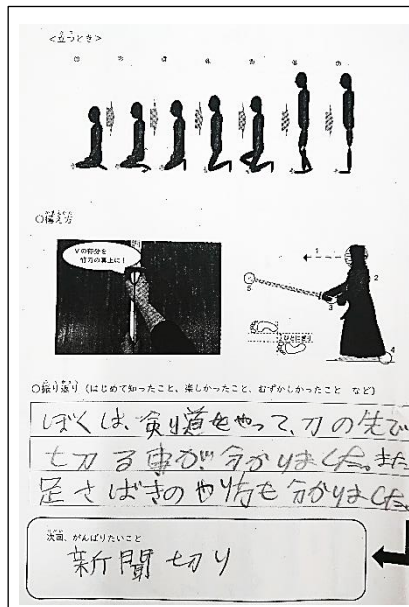 <立つとき>
① ② ③ ④ ⑤ ⑥ ⑦
○構え方
Vの部分を
竹刀の真上に!
1
2
3
4
5
ひとにぎり
○振り返り(はじめて知ったこと、楽しかったこと、むずかしかったこと など)
ぼくは、剣道をやって、刀の先で
切る事が分かりました。また
足さばきのやり方も分かりました。
次回、がんばりたいこと
新聞切り